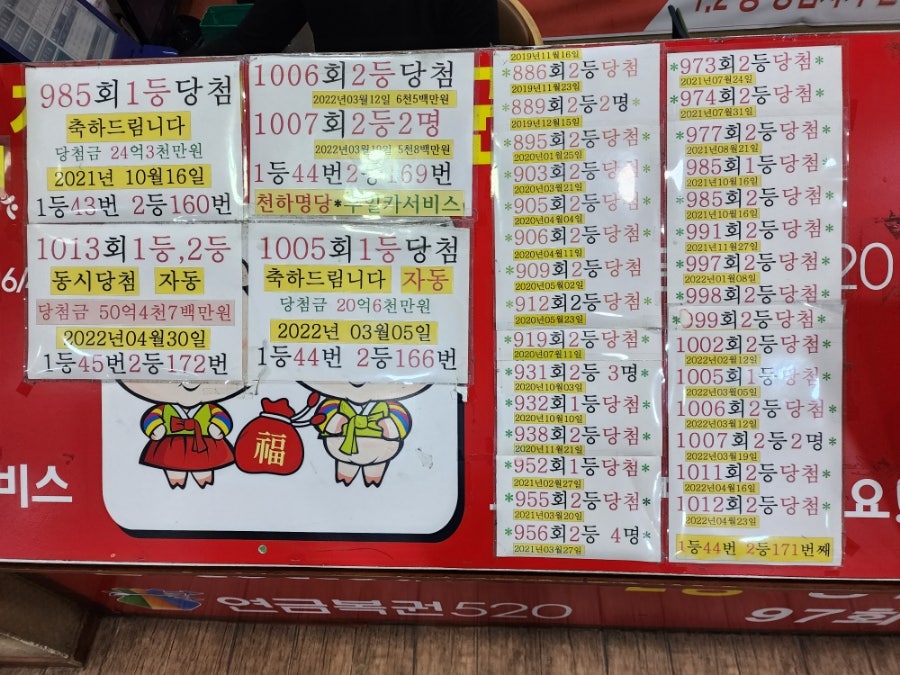 985회1등당첨
축하드립니다
당첨금 24억3천만원
2021년 10월16일
1등43번 2등160번
1006회2등당첨
2022년03월12일 6천5백만원
1007회2등2명
2022년03월19일 5천8백만원
1등44번2등169번
천하명당*주일카서비스
1013회1등,2등
동시당첨 자동
당첨금 50억4천7백만원
2022년04월30일
1등45번2등172번
1005회1등당첨
축하드립니다 자동
당첨금 20억6천만원
2022년 03월05일
1등44번 2등166번
2019년11월16일
*886회2등당첨*
2019년11월23일
*889회2등2명*
2019년12월15일
*895회2등당첨*
2020년01월25일
*903회2등당첨*
2020년03월21일
*905회2등당첨*
2020년04월04일
*906회2등당첨*
2020년04월11일
*909회2등당첨*
2020년05월02일
*912회2등당첨*
2020년05월23일
*919회2등당첨*
2020년07월11일
*931회2등 3명*
2020년10월03일
*932회1등당첨*
2020년10월10일
*938회2등당첨*
2020년11월21일
*952회1등당첨*
2021년02월27일
*955회2등당첨*
2021년03월20일
*956회2등 4명*
2021년03월27일
*973회2등당첨*
2021년07월24일
*974회2등당첨*
2021년07월31일
*977회2등당첨*
2021년08월21일
*985회1등당첨*
2021년10월16일
*985회2등당첨*
2021년10월16일
*991회2등당첨*
2021년11월27일
*997회2등당첨*
2022년01월08일
*998회2등당첨*
999회2등당첨*
1002회2등당첨*
2022년02월12일
1005회1등당첨*
2022년03월05일
*1006회2등당첨*
2022년03월12일
*1007회2등2명*
2022년03월19일
*1011회2등당첨*
2022년04월16일
1012회2등당첨*
2022년04월23일
1등44번 2등171번째
福
비스
요!
20
연금복권520
97회